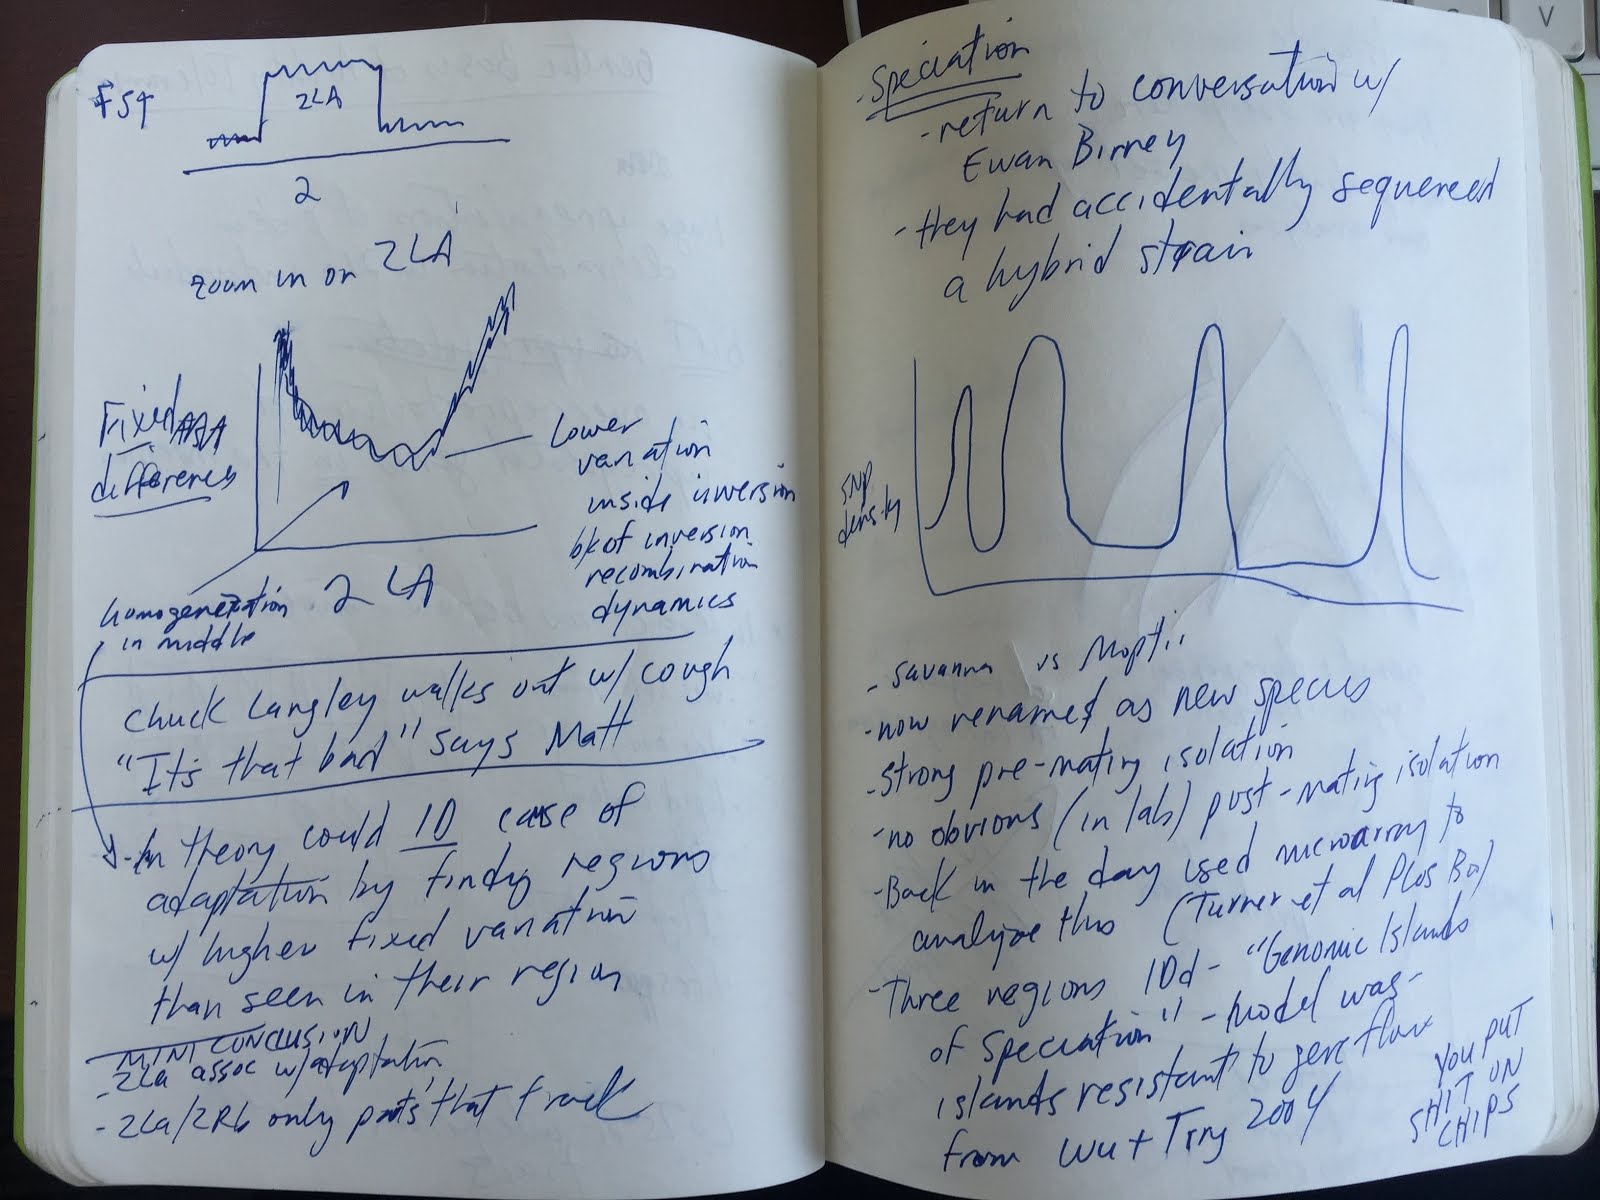 FST
2LA
2
zoom in on 2LA
Fixed
differences
Lower
variation
inside inversion
b/c of inversion
recombination
dynamics
homogenization
in middle
2LA
Chuck Langley walks out w/ cough
"It's that bad" says Matt
- In theory could ID case of
adaptation by finding regions
w/ higher fixed variation
than seen in their region
MINI CONCLUSION
- 2La assoc w/ adaptation
- 2La/2Rb only parts that track
. Speciation
- return to conversation w/
Ewan Birney
- they had accidentally sequenced
a hybrid strain
SNP
density
- Savanna vs Mopti
- now renamed as new species
- strong pre-mating isolation
- no obvious (in lab) post-mating isolation
- Back in the day used microarray to
analyze this (Turner et al PLoS Bio)
- Three regions IDd - "Genomic Islands
of Speciation" - model was -
islands resistant to gene flow
from Wu + Ting 2004
YOU PUT
SHIT ON
CHIPS
C
V